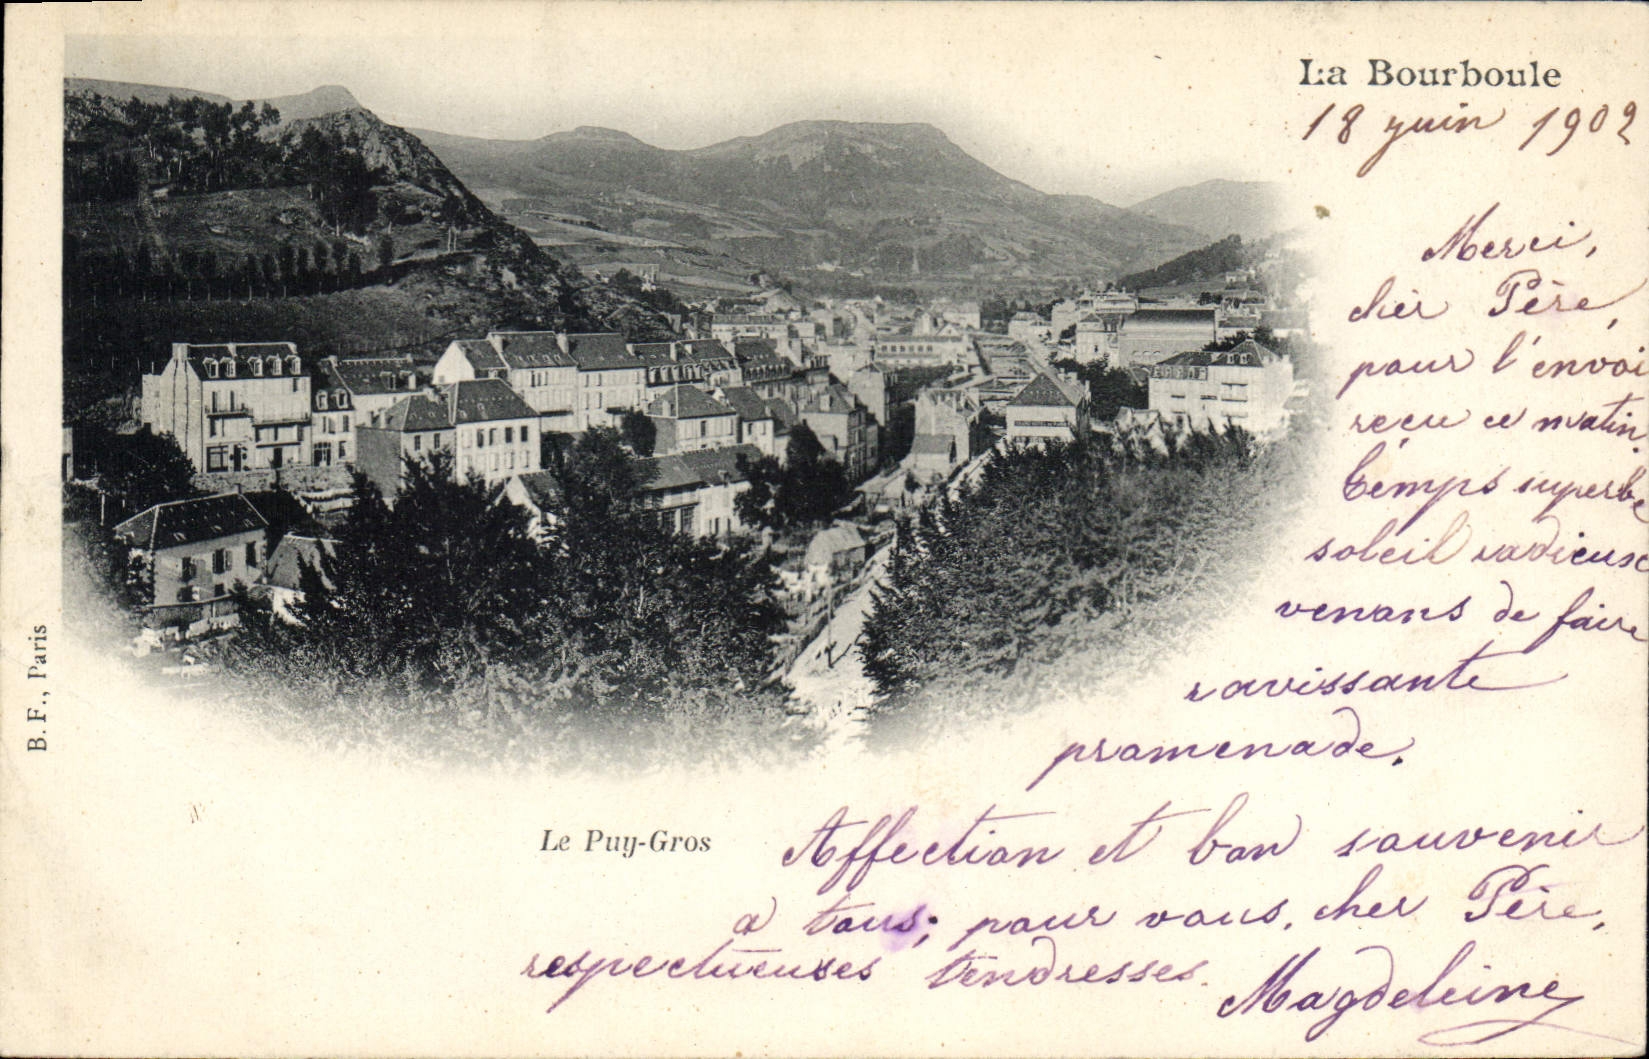 La Bourboule
18 juin 1902
Merci,
cher Père,
pour l'envoi
reçu ce matin,
temps superbe
soleil radieux
venons de faire
ravissante
promenade.
B. F., Paris
Le Puy-Gros
Affection et bon souvenir
à tous; pour vous, cher Père,
respectueuses tendresses.
Magdeleine